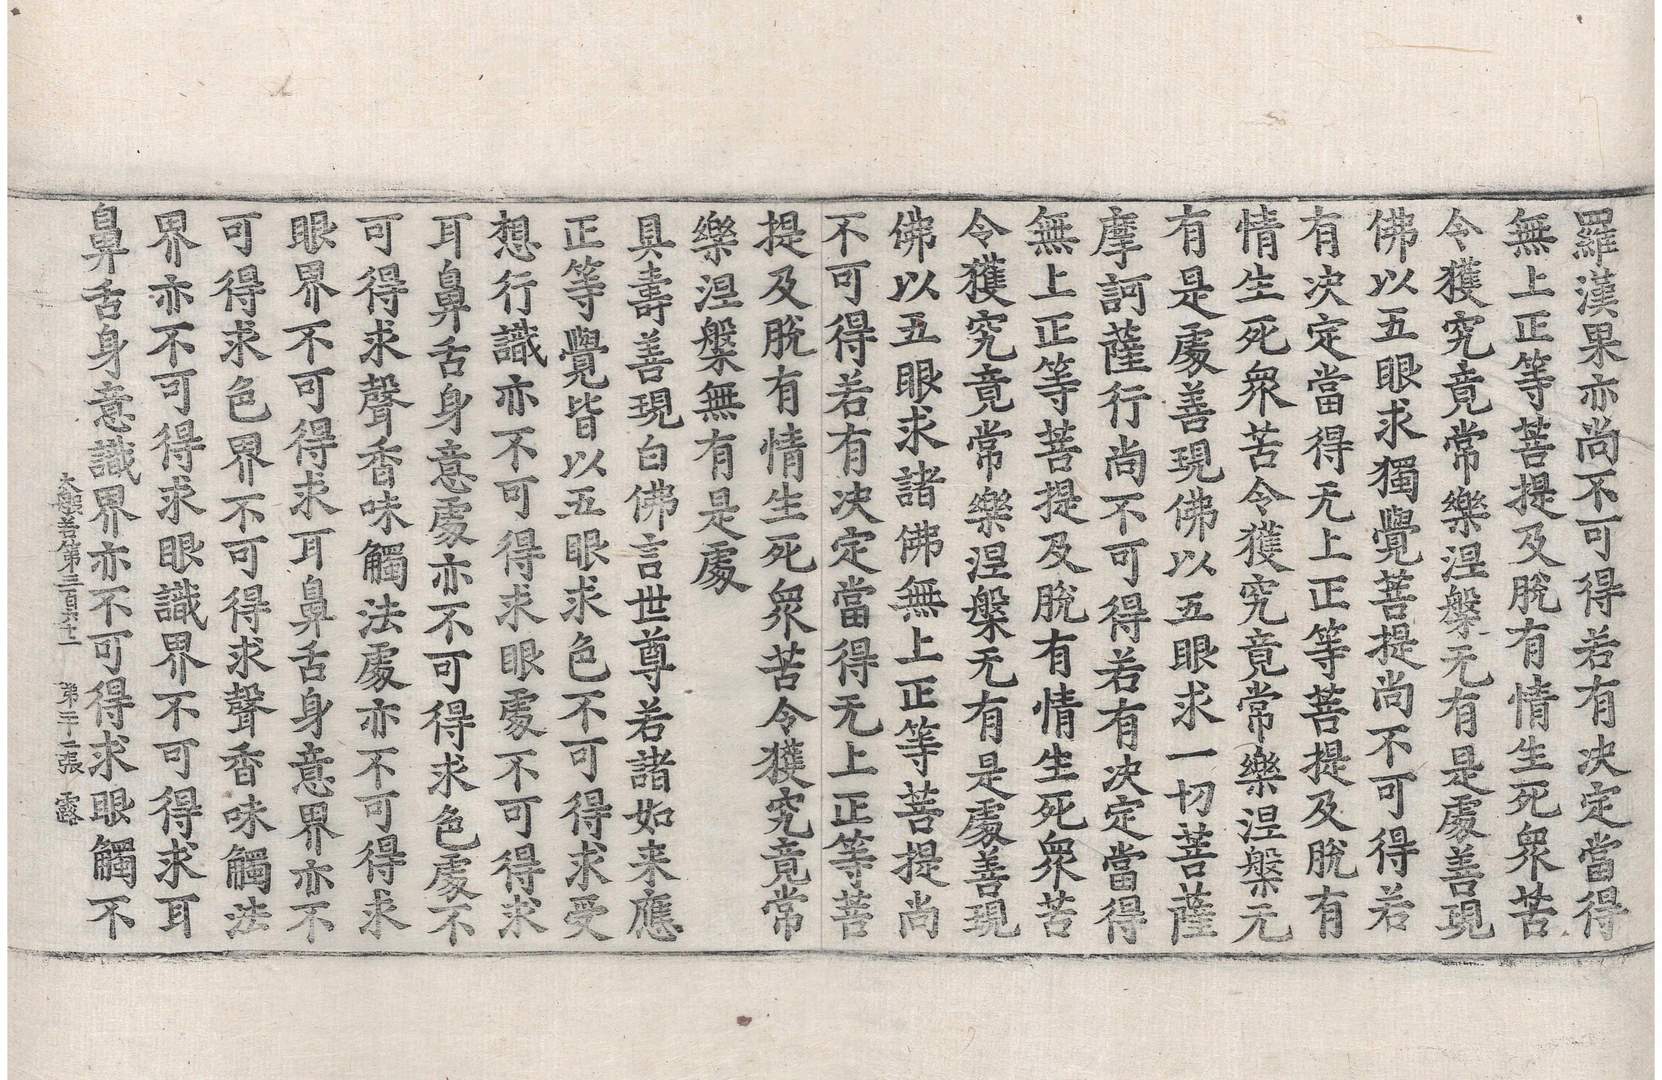 羅漢果亦尚不可得若有决定當得
無上正等菩提及脫有情生死衆苦
令獲究竟常樂涅槃无有是處善現
佛以五眼求獨覺菩提尚不可得若
有决定當得无上正等菩提及脫有
情生死衆苦令獲究竟常樂涅槃无
有是處善現佛以五眼求一切菩薩
摩訶薩行尚不可得若有决定當得
無上正等菩提及脫有情生死衆苦
令獲究竟常樂涅槃无有是處善現
佛以五眼求諸佛無上正等菩提尚
不可得若有决定當得无上正等菩
提及脫有情生死衆苦令獲究竟常
樂涅槃無有是處
具壽善現白佛言世尊若諸如来應
正等覺皆以五眼求色不可得求受
想行識亦不可得求眼處不可得求
耳鼻舌身意處亦不可得求色處不
可得求聲香味觸法處亦不可得求
眼界不可得求耳鼻舌身意界亦不
可得求色界不可得求聲香味觸法
界亦不可得求眼識界不可得求耳
鼻舌身意識界亦不可得求眼觸不
大般若第三百六十一 第二張